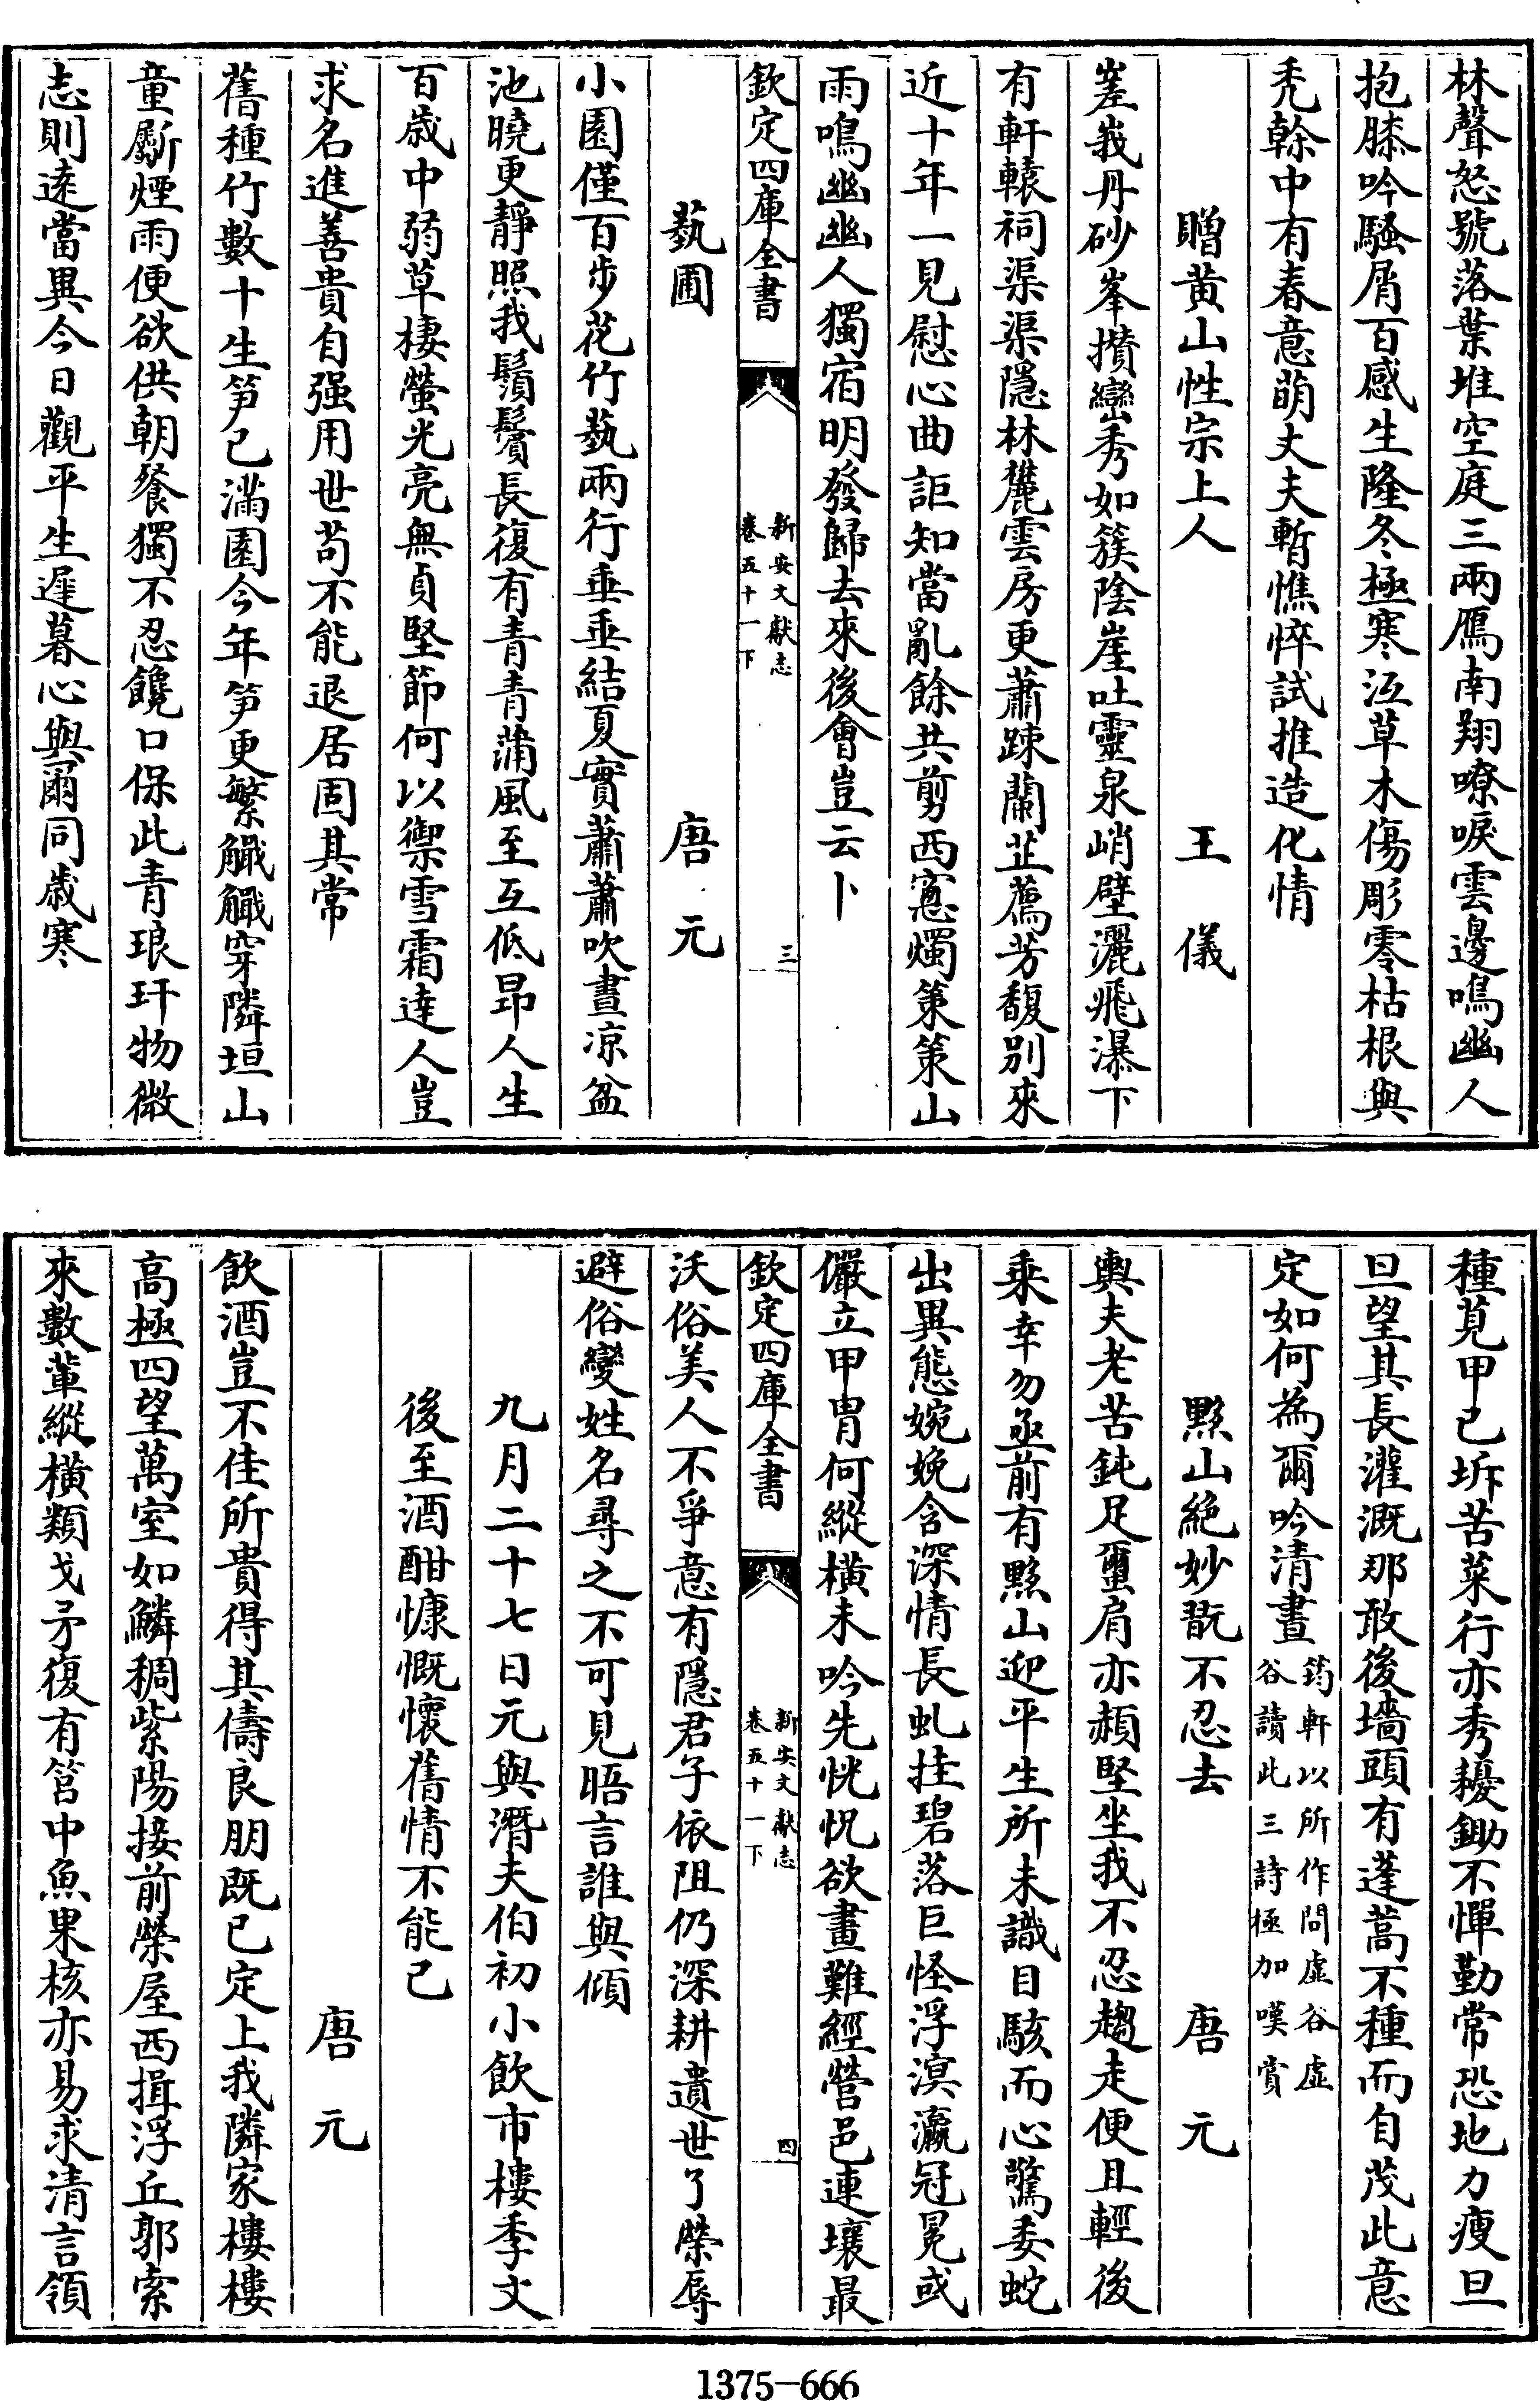 林聲怒號落葉堆空庭三兩鴈南翔嘹唳雲邊鳴幽人
抱膝吟騷屑百感生隆冬極寒沍草木傷彫零枯根與
禿榦中有春意萌丈夫暫憔悴試推造化情
贈黄山性宗上人　王儀
嵳峩丹砂峯攅巒秀如簇陰崖吐靈泉峭壁灑飛瀑下
有軒轅祠渠渠隱林麓雲房更蕭踈蘭芷薦芳馥别來
近十年一見慰心曲詎知當亂餘共剪西窻燭策策山
雨鳴幽幽人獨宿明發歸去來後會豈云卜
欽定四庫全書
新安文獻志
卷五十一下
三
蓺圃　唐元
小園僅百步花竹蓺兩行垂垂結夏實蕭蕭吹晝凉盆
池曉更靜照我鬚鬢長復有青青蒲風至互低昂人生
百歳中弱草棲螢光亮無貞堅節何以禦雪霜達人豈
求名進善貴自强用世苟不能退居固其常
舊種竹數十生笋已滿園今年笋更繁觽觽穿隣垣山
童斸煙雨便欲供朝飱獨不忍饞口保此青琅玕物微
志則逺當異今日觀平生遲暮心與爾同歳寒
種莧甲已坼苦菜行亦秀耰鋤不憚勤常恐地力瘦旦
旦望其長灌溉那敢後墻頭有蓬蒿不種而自茂此意
定如何為爾吟清晝
筠軒以所作問虛谷虛
谷讀此三詩極加嘆賞
黟山絶妙翫不忍去　唐元
輿夫老苦鈍足璽肩亦頳堅坐我不忍趨走便且輕後
乘幸勿亟前有黟山迎平生所未識目駭而心驚委蛇
出異態婉娩含深情長虬挂碧落巨怪浮溟瀛冠冕或
儼立甲冑何縱横未吟先恍怳欲畫難經營邑連壤最
欽定四庫全書
新安文獻志
卷五十一下
四
沃俗美人不爭意有隱君子依阻仍深耕遺世了榮辱
避俗變姓名尋之不可見晤言誰與傾
九月二十七日元與潛夫伯初小飲市樓季文
後至酒酣慷慨懷舊情不能已
唐元
飲酒豈不佳所貴得其儔良朋既已定上我隣家樓樓
高極四望萬室如鱗稠紫陽接前榮屋西揖浮丘郭索
來數輩縱横類戈矛復有筥中魚果核亦易求清言領
1375-666